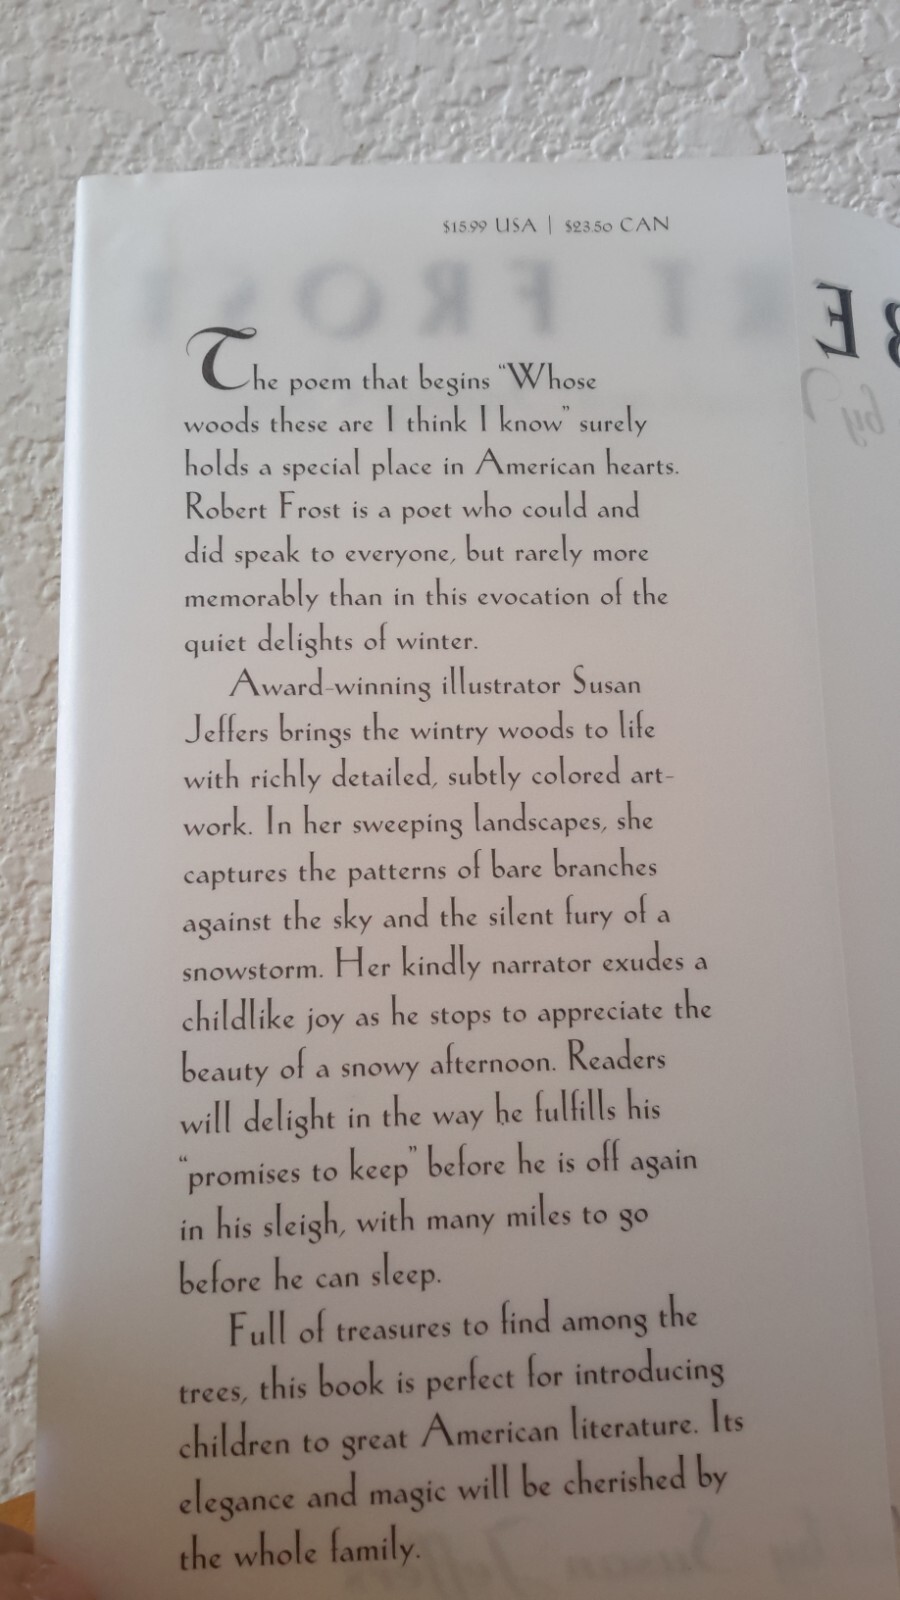 $15.99 USA | $23.50 CAN
RT FROST
BE
by
The poem that begins “Whose
woods these are I think I know” surely
holds a special place in American hearts.
Robert Frost is a poet who could and
did speak to everyone, but rarely more
memorably than in this evocation of the
quiet delights of winter.
Award-winning illustrator Susan
Jeffers brings the wintry woods to life
with richly detailed, subtly colored art-
work. In her sweeping landscapes, she
captures the patterns of bare branches
against the sky and the silent fury of a
snowstorm. Her kindly narrator exudes a
childlike joy as he stops to appreciate the
beauty of a snowy afternoon. Readers
will delight in the way he fulfills his
“promises to keep” before he is off again
in his sleigh, with many miles to go
before he can sleep.
Full of treasures to find among the
trees, this book is perfect for introducing
children to great American literature. Its
elegance and magic will be cherished by
the whole family.
by Susan Jeffers